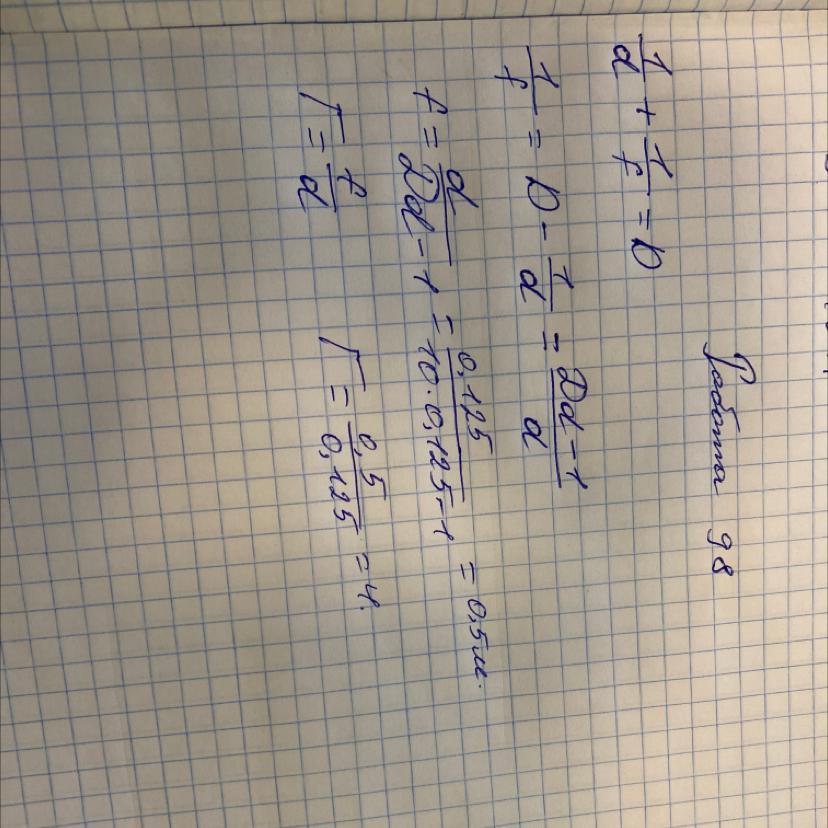 Работа 98
1/d + 1/f = D
1/f = D - 1/d = Dd-1/d
f = d/Dd-1 = 0,125/10·0,125-1 = 0,5м.
Г = f/d Г = 0,5/0,125 = 4.